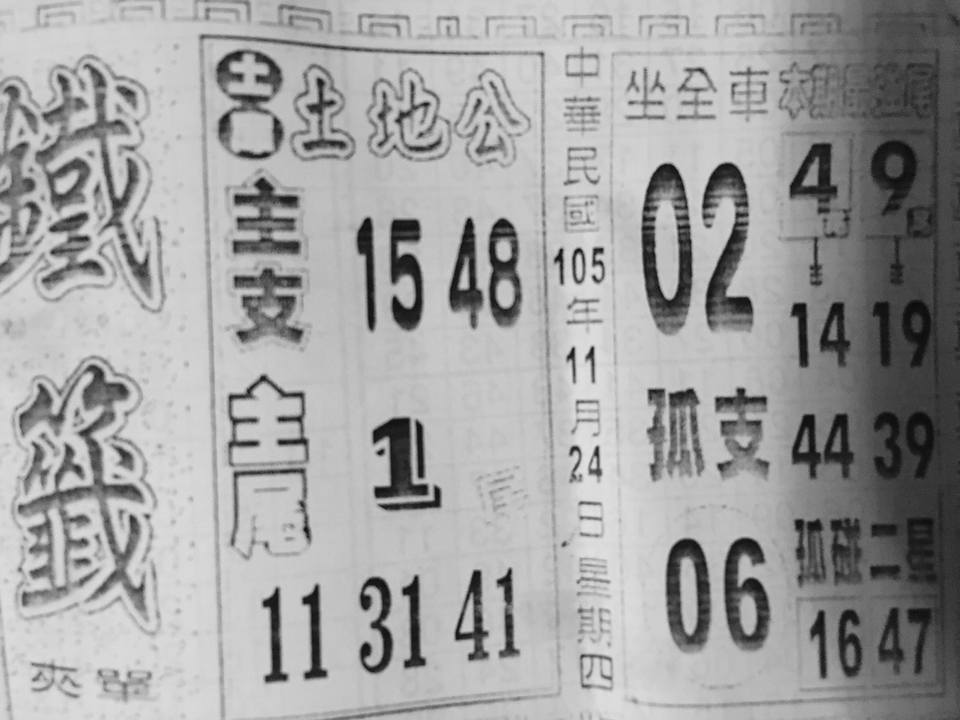 鐵籤
夾單
土地公
主支
15 48
主尾
1尾
11 31 41
中華民國105年11月24日星期四
坐全車
02
孤支
06
本期最強尾
4 9
14 19
44 39
孤碰二星
16 47